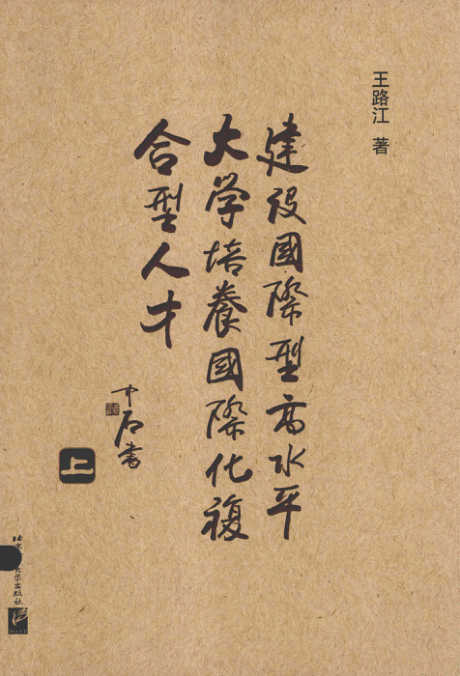 王路江 著
建设國際型高水平
大学培養國際化複
合型人才
中石書
上